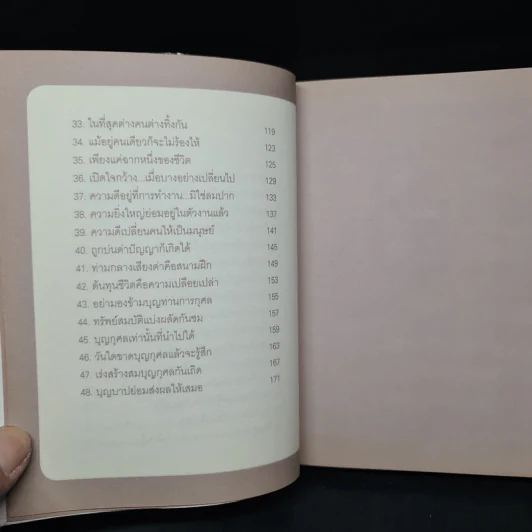 33. ในที่สุดต่างคนต่างทิ้งกัน 119
34. แม้อยู่คนเดียวก็จะไม่ร้องไห้ 123
35. เพียงแค่ฉากหนึ่งของชีวิต 125
36. เปิดใจกว้าง...เมื่อบางอย่างเปลี่ยนไป 129
37. ความดีอยู่ที่การทำงาน...มิใช่ลมปาก 133
38. ความยิ่งใหญ่ย่อมอยู่ในตัวงานแล้ว 137
39. ความดีเปลี่ยนคนให้เป็นมนุษย์ 141
40. ถูกบ่นด่าปัญญาก็เกิดได้ 145
41. ท่ามกลางเสียงด่าคือสนามฝึก 149
42. ต้นทุนชีวิตคือความเปลือยเปล่า 153
43. อย่ามองข้ามบุญทานการกุศล 155
44. ทรัพย์สมบัติแบ่งผลัดกันชม 157
45. บุญกุศลเท่านั้นที่นำไปได้ 159
46. วันใดขาดบุญกุศลแล้วจะรู้สึก 163
47. เร่งสร้างสมบุญกุศลกันเถิด 167
48. บุญบาปย่อมส่งผลให้เสมอ 171